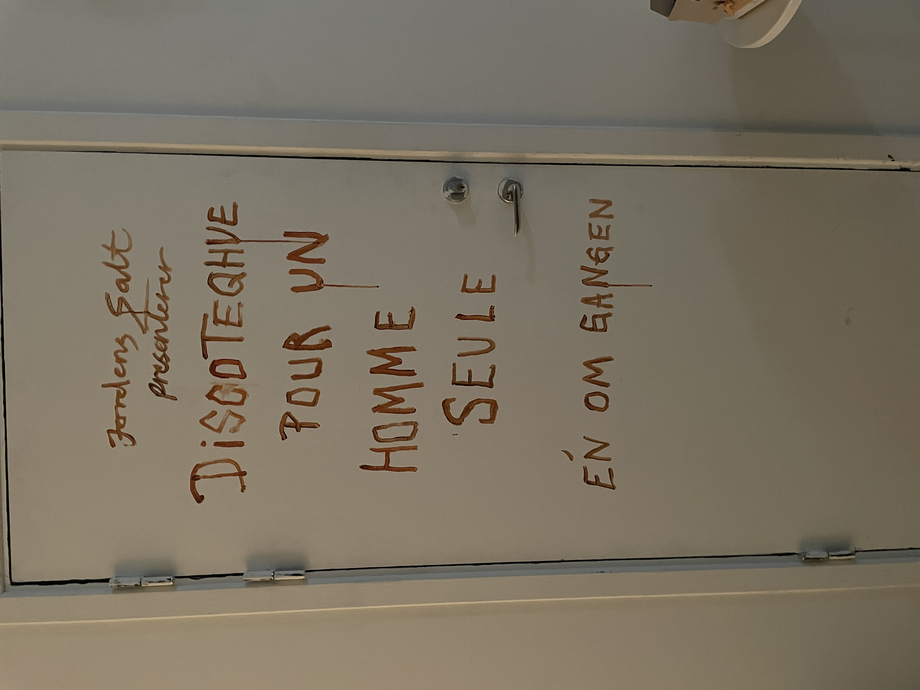 Jordens Salt
presenterer
DiSCOTEQHVE
POUR UN
HOMME
SEULE
ÉN OM GANGEN